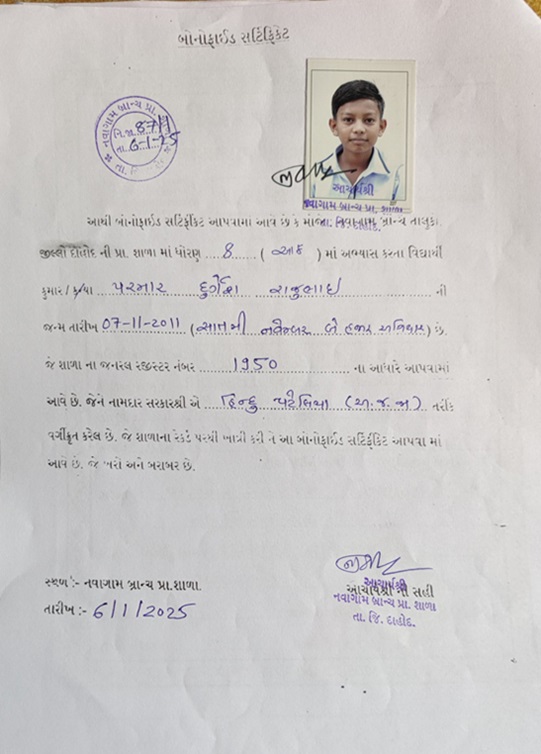 બોનોફાઈડ સર્ટિફિકેટ
નવાગામ બ્રાન્ચ પ્રા.
જિ.જા. 87
તા. 6-1-25
આચાર્યશ્રી
નવાગામ બ્રાન્ચ પ્રા. શાળા
તા. જિ. દાહોદ.
આથી બોનોફાઈડ સર્ટિફિકેટ આપવામા આવે છે કે મોજા. નવાગામ બ્રાન્ચ તાલુકા.
જીલ્લો દાહોદ ની પ્રા. શાળા માં ધોરણ 8 ( આઠ ) માં અભ્યાસ કરતા વિદ્યાર્થી
કુમાર / કન્યા પરમાર દુર્ગેશ રાજુભાઇ ની
જન્મ તારીખ 07-11-2011 (સાતમી નવેમ્બર બે હજાર અગિયાર) છે.
જે શાળા ના જનરલ રજીસ્ટર નંબર 1950 ના આધારે આપવામાં
આવે છે. જેને નામદાર સરકારશ્રી એ હિન્દુ પટેલિયા (અ.જ.જા) તરીકે
વર્ગીકૃત કરેલ છે. જે શાળાના રેકર્ડ પરથી ખાત્રી કરી ને આ બોનોફાઈડ સર્ટિફિકેટ આપવા માં
આવે છે. જે ખરો અને બરાબર છે.
સ્થળ :- નવાગામ બ્રાન્ચ પ્રા.શાળા.
તારીખ :- 6/1/2025
આચાર્યશ્રી
આચાર્યશ્રી ની સહી
નવાગામ બ્રાન્ચ પ્રા. શાળા
તા. જિ. દાહોદ.